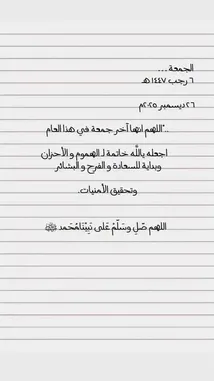 الجمعة ...
٦ رجب ١٤٤٧ هـ
٢٦ ديسمبر ٢٠٢٥م
.."اللهم انها آخر جمعة في هذا العام
اجعله ياللَّه خاتمة لـ الهموم و الأحزان
وبداية للسعادة و الفرح و البشائر
وتحقيق الأمنيات.
اللهم صّلِ وسَلّمْ عَلى نَبِيْنَامُحَمد ﷺ